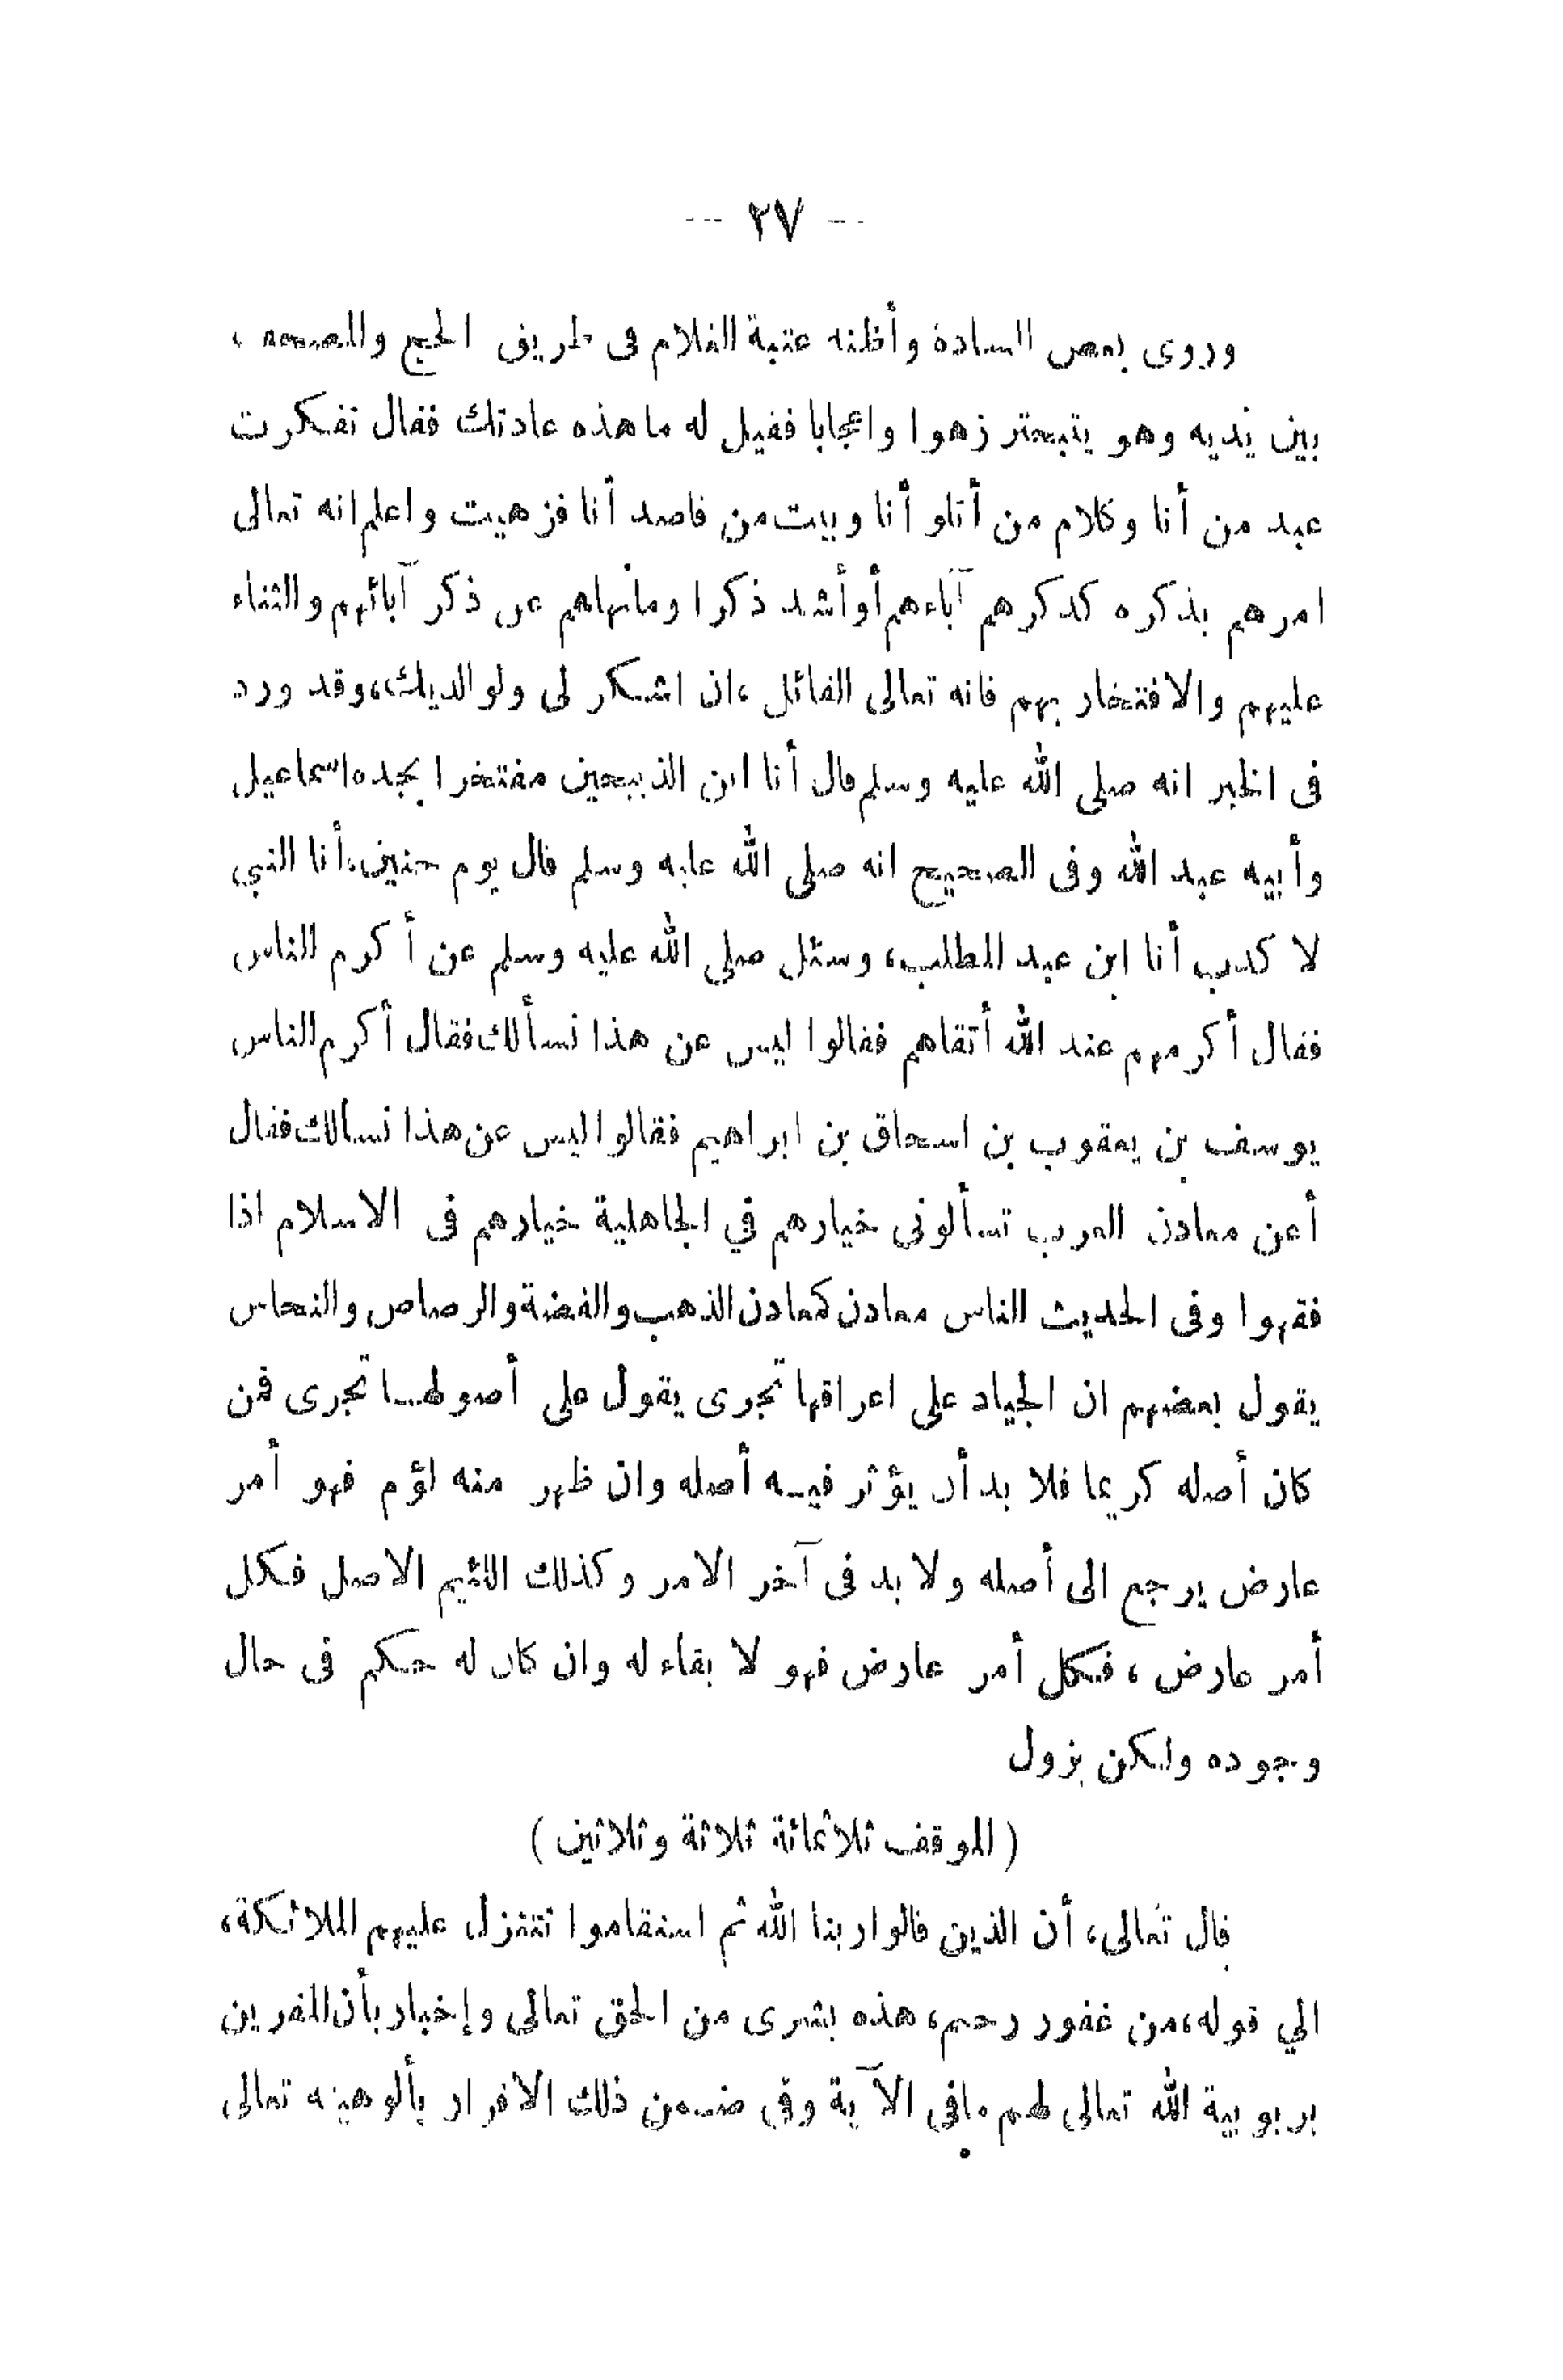 -- ٢٧ --
وروى بعض السادة وأظنه عتبة الغلام فى طريق الحج والمصحف ،
بين يديه وهو يتبختر زهوا واعجابا فقيل له ما هذه عادتك فقال تفكرت
عبد من أنا وكلام من أتلو أنا وبيت من قاصد أنا فزهيت واعلم انه تعالى
امرهم بذكره كذكرهم آباءهم أو أشد ذكرا وما نهاهم عن ذكر آبائهم والثناء
عليهم والافتخار بهم فانه تعالى القائل ،ان اشكر لى ولوالديك،،وقد ورد
فى الخبر انه صلى الله عليه وسلم قال أنا ابن الذبيحين مفتخرا بجده اسماعيل
وأبيه عبد الله وفى الصحيح انه صلى الله عليه وسلم قال يوم حنين،أنا النبي
لا كذب أنا ابن عبد المطلب، وسئل صلى الله عليه وسلم عن أكرم الناس
فقال أكرمهم عند الله أتقاهم فقالوا ليس عن هذا نسألك فقال أكرم الناس
يوسف بن يعقوب بن اسحاق بن ابراهيم فقالوا ليس عن هذا نسألك فقال
أعن معادن العرب تسألونى خيارهم في الجاهلية خيارهم فى الاسلام اذا
فقهوا وفى الحديث الناس معادن كمعادن الذهب والفضة والرصاص والنحاس
يقول بعضهم ان الجياد على اعراقها تجرى يقول على أصولهـا تجرى فمن
كان أصله كريما فلا بد أن يؤثر فيـه أصله وان ظهر منه لؤم فهو أمر
عارض يرجع الى أصله ولا بد فى آخر الامر وكذلك اللئيم الاصل فكل
أمر عارض ، فكل أمر عارض فهو لا بقاء له وان كان له حكم فى حال
وجوده ولكن يزول
( الموقف ثلاثمائة ثلاثة وثلاثين )
قال تعالى، أن الذين قالوا ربنا الله ثم استقاموا تتنزل عليهم الملائكة،
الي قوله،من غفور رحيم، هذه بشرى من الحق تعالى وإخبار بأن المقرين
بربوبية الله تعالى لهم مافى الآية وفى ضمن ذلك الاقرار بألوهيته تعالى